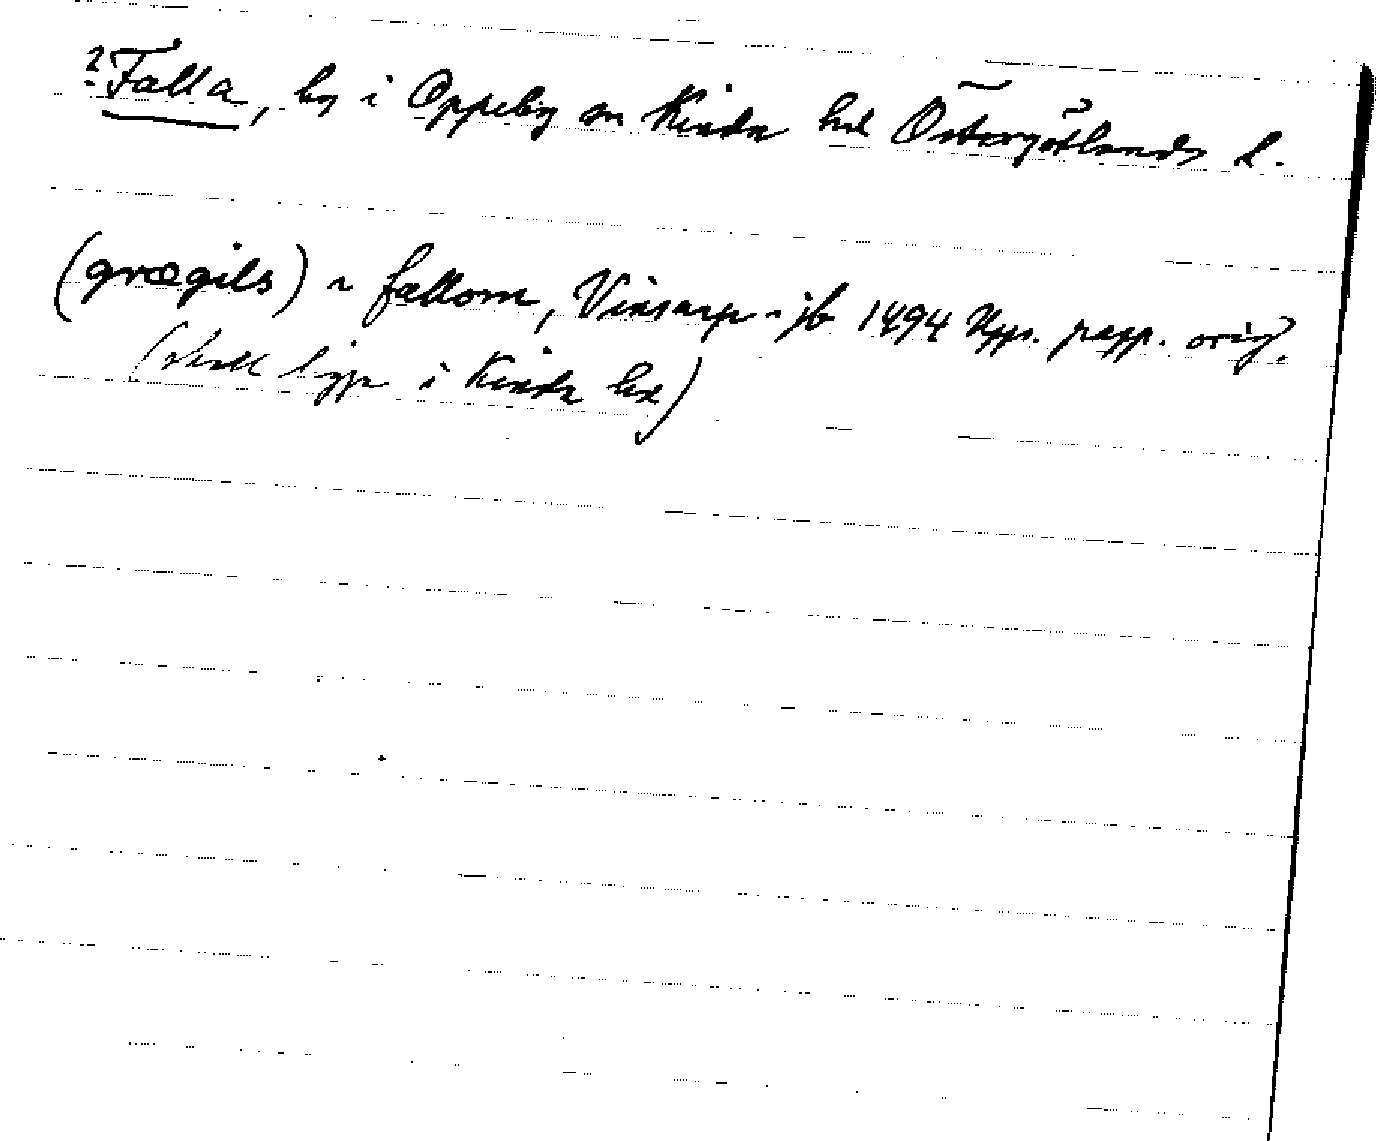 ? Falla, by i Oppeby sn Kinda hd Östergötlands l.
(grægils) i fallom, Vinsarp i jb 1494 Upps. papp. orig.
(skall ligga i Kinda hd)